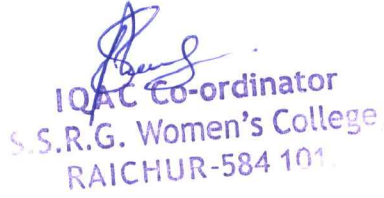 IQAC Co-ordinator
S.S.R.G. Women's College
RAICHUR-584 101.